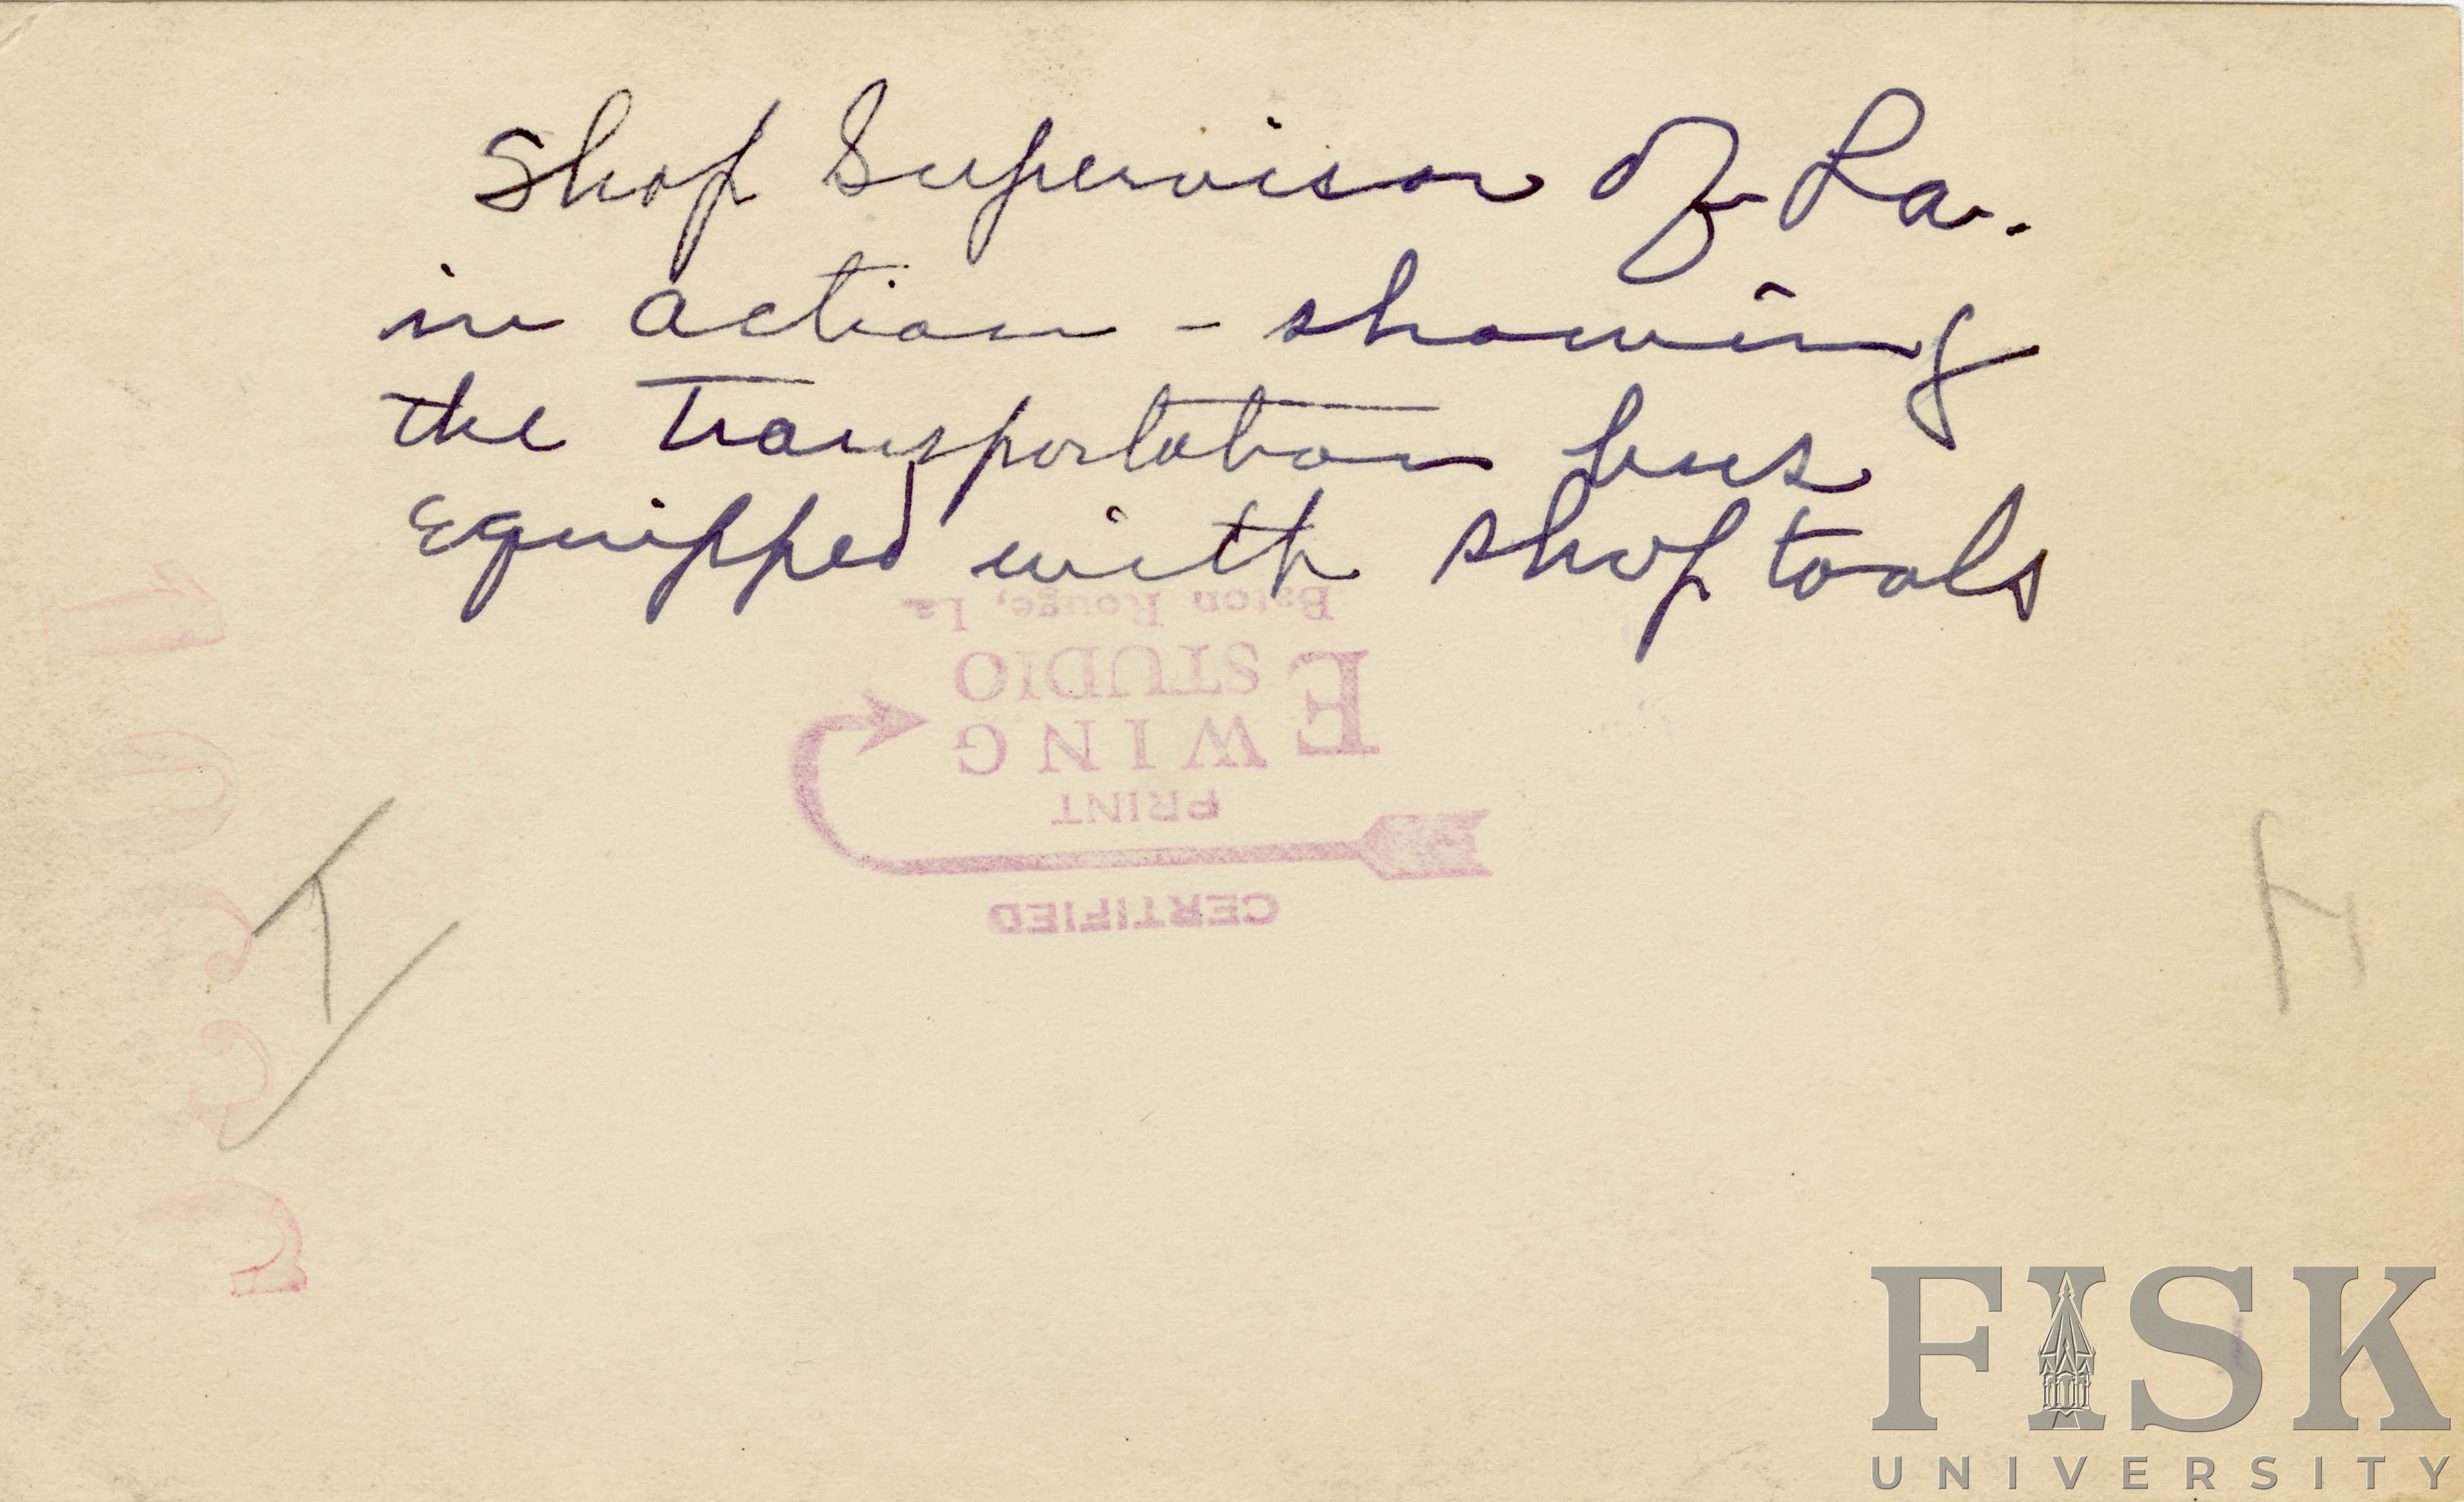 Shop Supervisor of La.
in action - showing
the Transportation bus
equipped with shop tools
CERTIFIED
PRINT
EWING
STUDIO
Baton Rouge, La.
H
FISK
UNIVERSITY